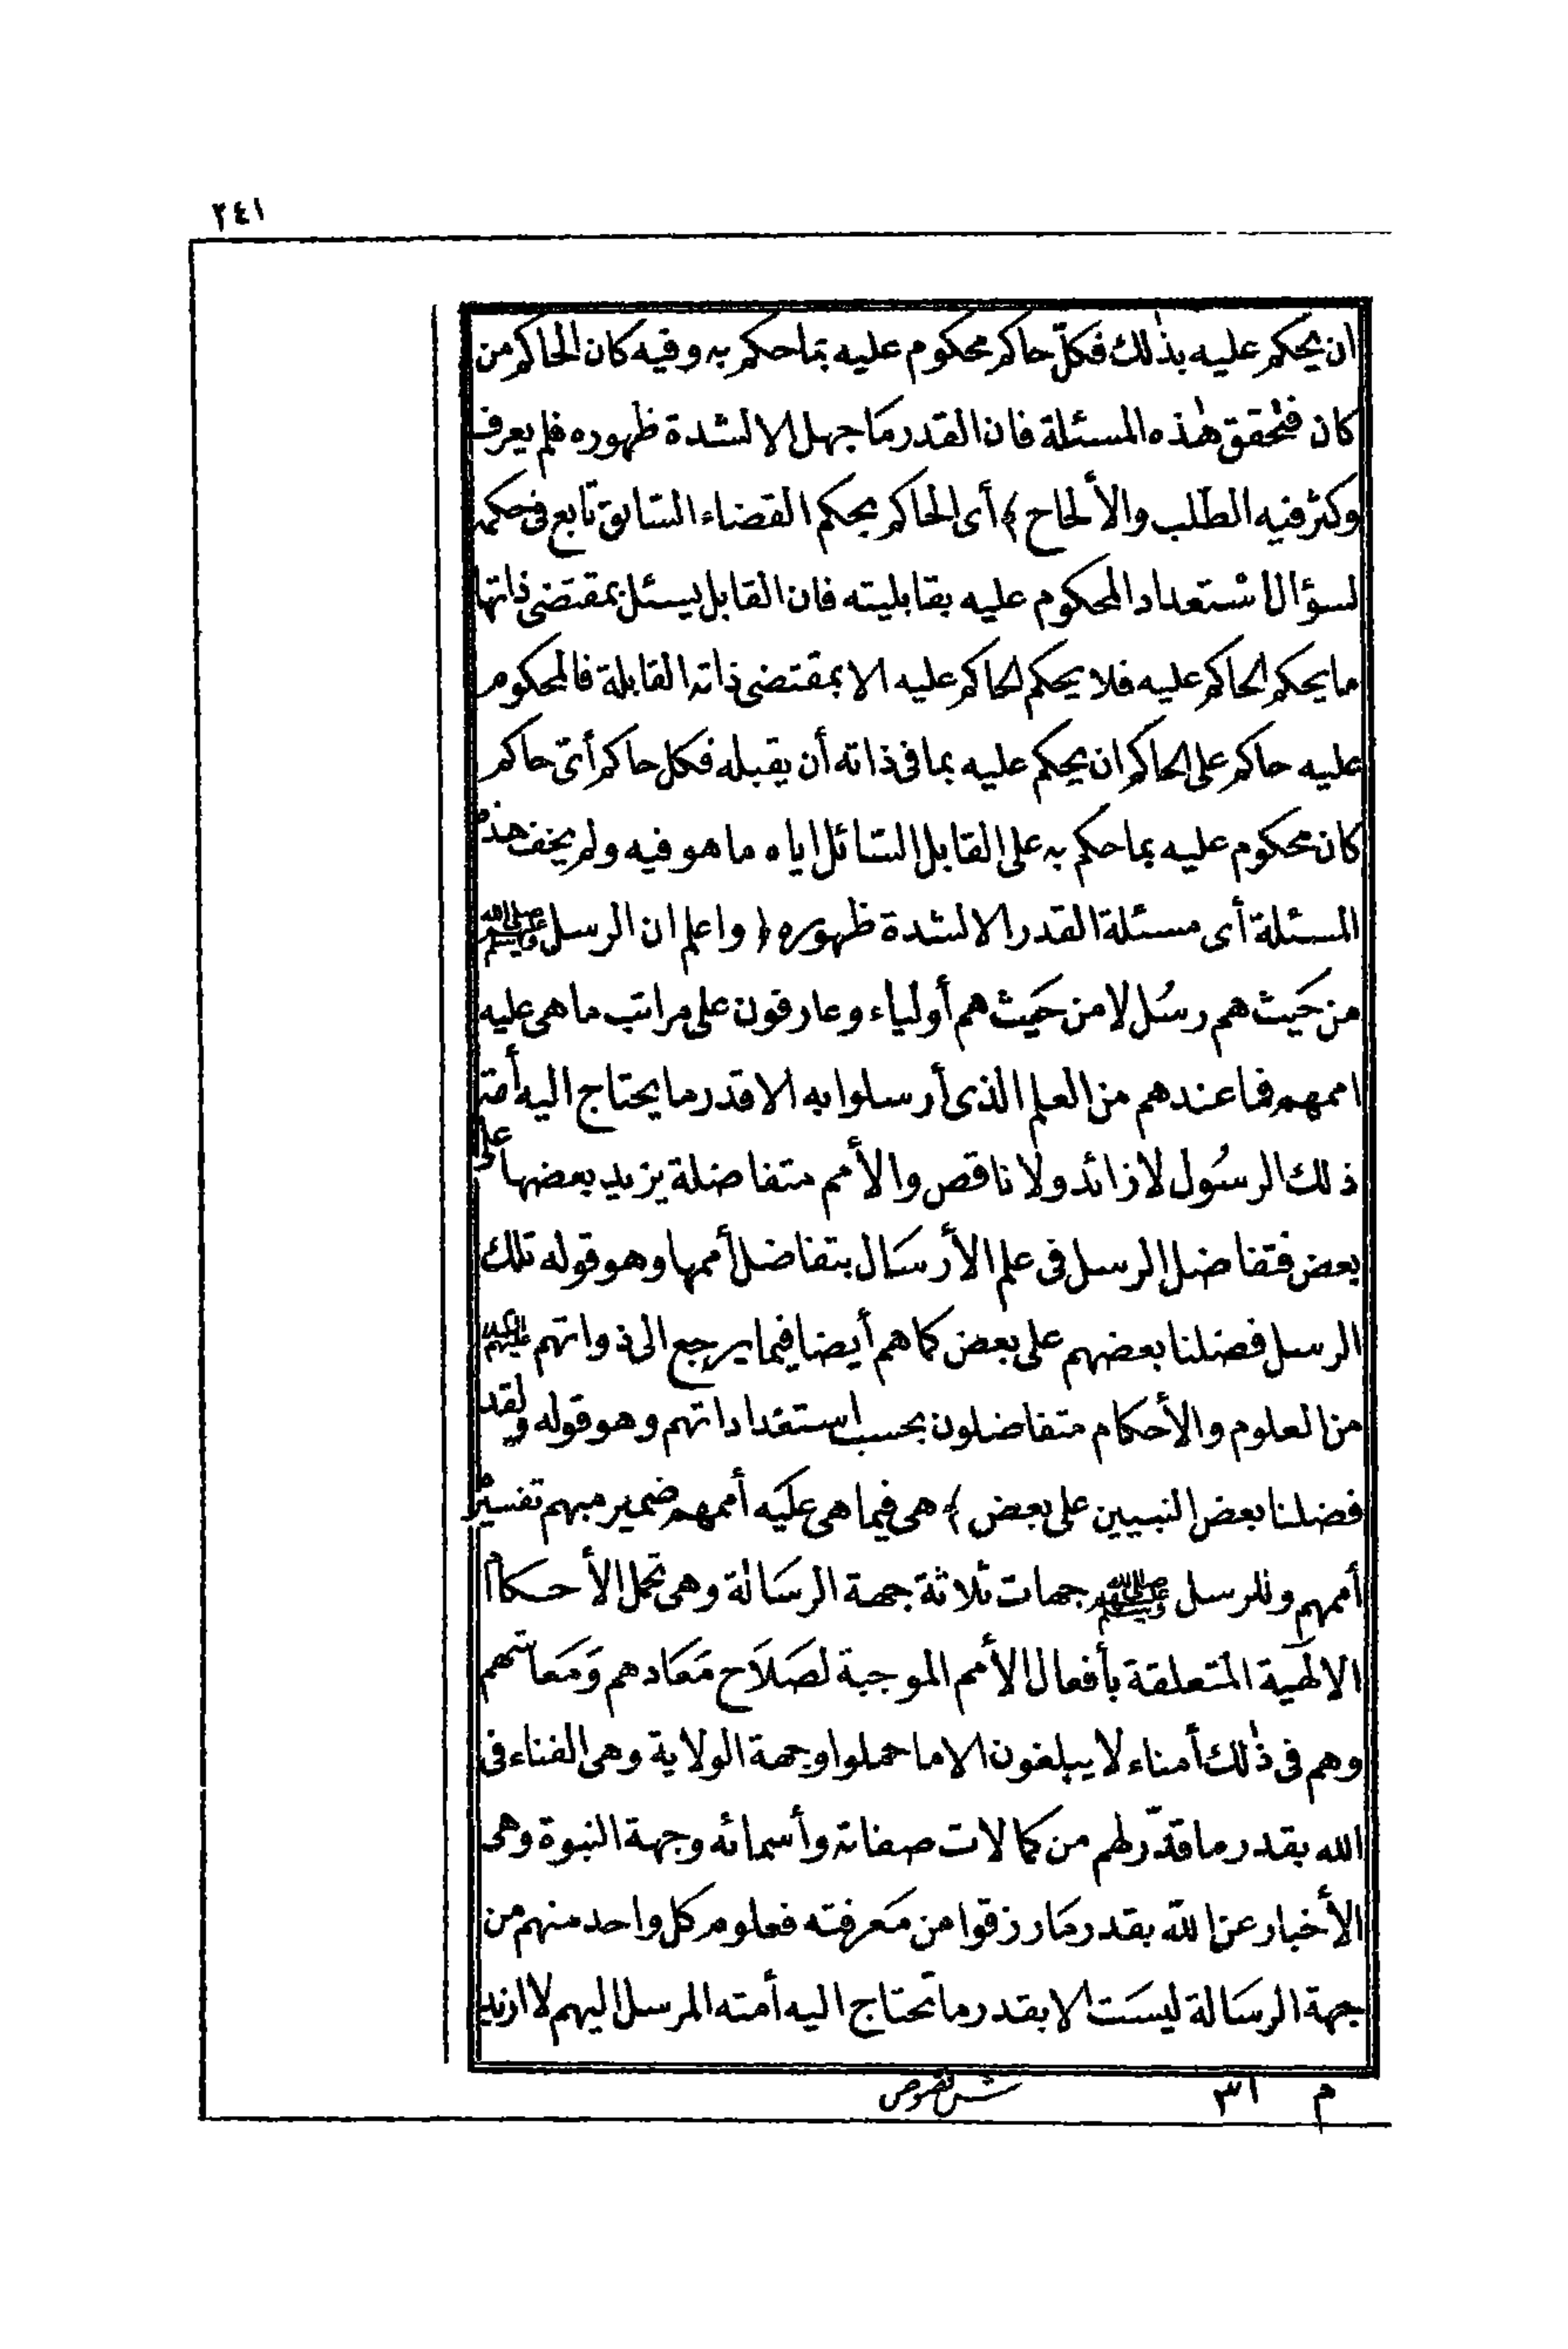 ٢٤١
ان يحكم عليه بذلك فكلّ حاكم محكوم عليه بما حكم به وفيه كان الحاكم من
كان فتحقق هذه المسئلة فان القدر مَا جهل الا لشدة ظهوره فلم يعرف
وكثر فيه الطلب والألحاح ﴾ أى الحاكم بحكم القضاء السّابق تابع فى حكمه
لسؤال استعداد المحكوم عليه بقابليته فان القابل يسئل بمقتضى ذاتها
ما يحكم الحاكم عليه فلا يحكم الحاكم عليه الا بمقتضى ذاته القابلة فالمحكوم
عليه حاكم على الحاكم ان يحكم عليه بما فى ذاته أن يقبله فكل حاكم أىّ حاكم
كان محكوم عليه بما حكم به على القابل السّائل اياه ما هو فيه ولم يخف هذه
المسئلة أى مسئلة القدر الا لشدة ظهوره ﴿ واعلم ان الرسل صلى الله عليهم وسلم
من حَيث هم رسُل لا من حَيث هم أولياء وعارفون على مراتب ما هى عليه
اممهم فما عندهم من العلم الذى أرسلوا به الا قدر ما يحتاج اليه أمّة
ذلك الرسُول لا زائد ولا ناقص والأمم متفاضلة يزيد بعضها على
بعض فتفاضل الرسل فى علم الأرسَال بتفاضل أممها وهو قوله تلك
الرسل فضلنا بعضهم على بعض كما هم أيضا فيما يرجع الى ذواتهم عليهم السلام
من العلوم والأحكام متفاضلون بحسب استعداداتهم وهو قوله ولقد
فضلنا بعض النبيين على بعض ﴾ هى فيما هى عليَه أممهم ضمير مبهم تفسيره
أممهم وللرسل صلى الله عليهم وسلم جهات ثلاثة جهة الرسَالة وهى تحمل الأحكام
الالهَية المتعلقة بأفعال الأمم الموجبة لصَلاَح مَعَادهم وَمَعاشهم
وهم فى ذلك أمناء لا يبلغون الا ما حملوا وجهة الولاية وهى الفناء فى
الله بقدر ما قدّر لهم من كمالات صفاته وأسمائه وجهة النبوة وهى
الأخبار عن الله بقدر مَا رزقوا من مَعرفته فعلوم كل واحد منهم من
جهة الرسَالة ليسَت الا بقدر ما تحتاج اليه أمته المرسل اليهم لا ازيد
م ٣١ شرح فصوص